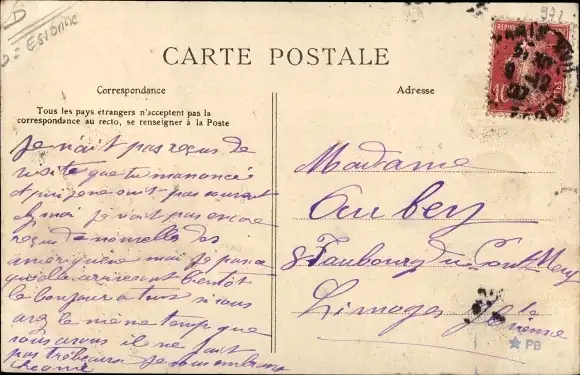 D
= Essonne
972
CARTE POSTALE
Correspondance
Adresse
Tous les pays étrangers n'acceptent pas la
correspondance au recto, se renseigner à la Poste
PARIS
10
Je n'ait pas reçus de
visite que tu m'anoncés
et puis je ne suit pas souvent
chez moi je n'ait pas encore
reçus de nouvelles des
américaine mais je pense
qu'elle arriveront bientôt
le bonjour a tous si vous
avez le même temps que
nous avons il ne fait
pas très beaux je vous embrasse
Madame
Aubey
8 Faubourg du Pont Neuf
Limoges Hte
Vienne
PB